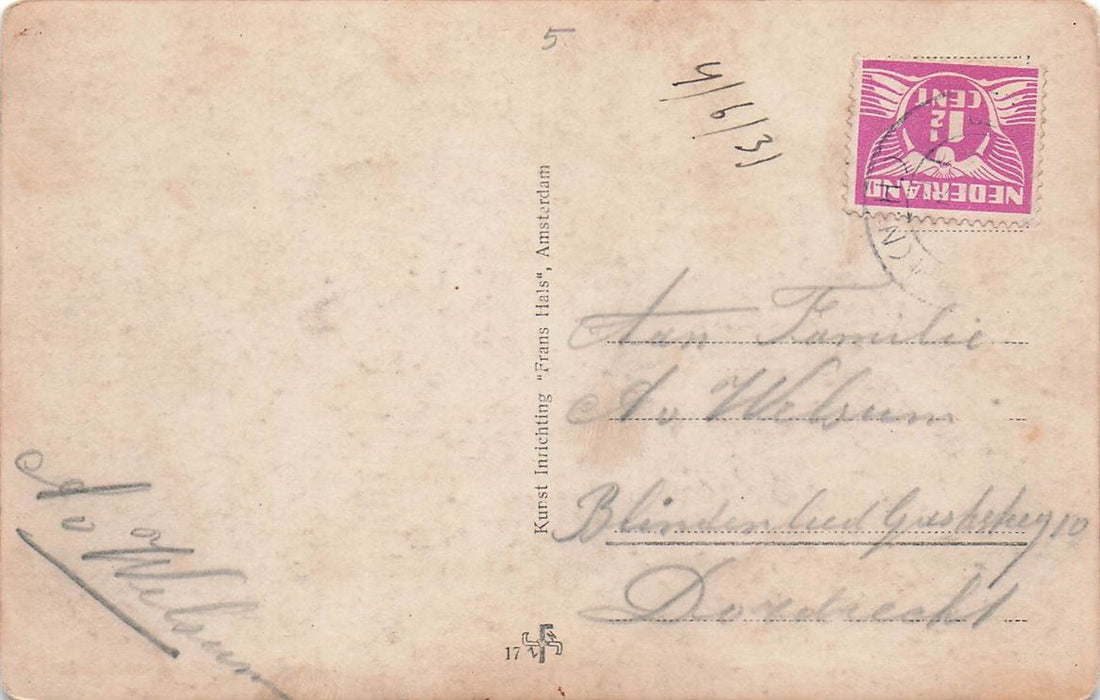 5
4/6/31
NEDERLAND
1½
CENT
Kunst Inrichting "Frans Hals", Amsterdam
Aan Familie
A v Welsum
Blindenlied 10
Dordrecht
A v Welsum
17